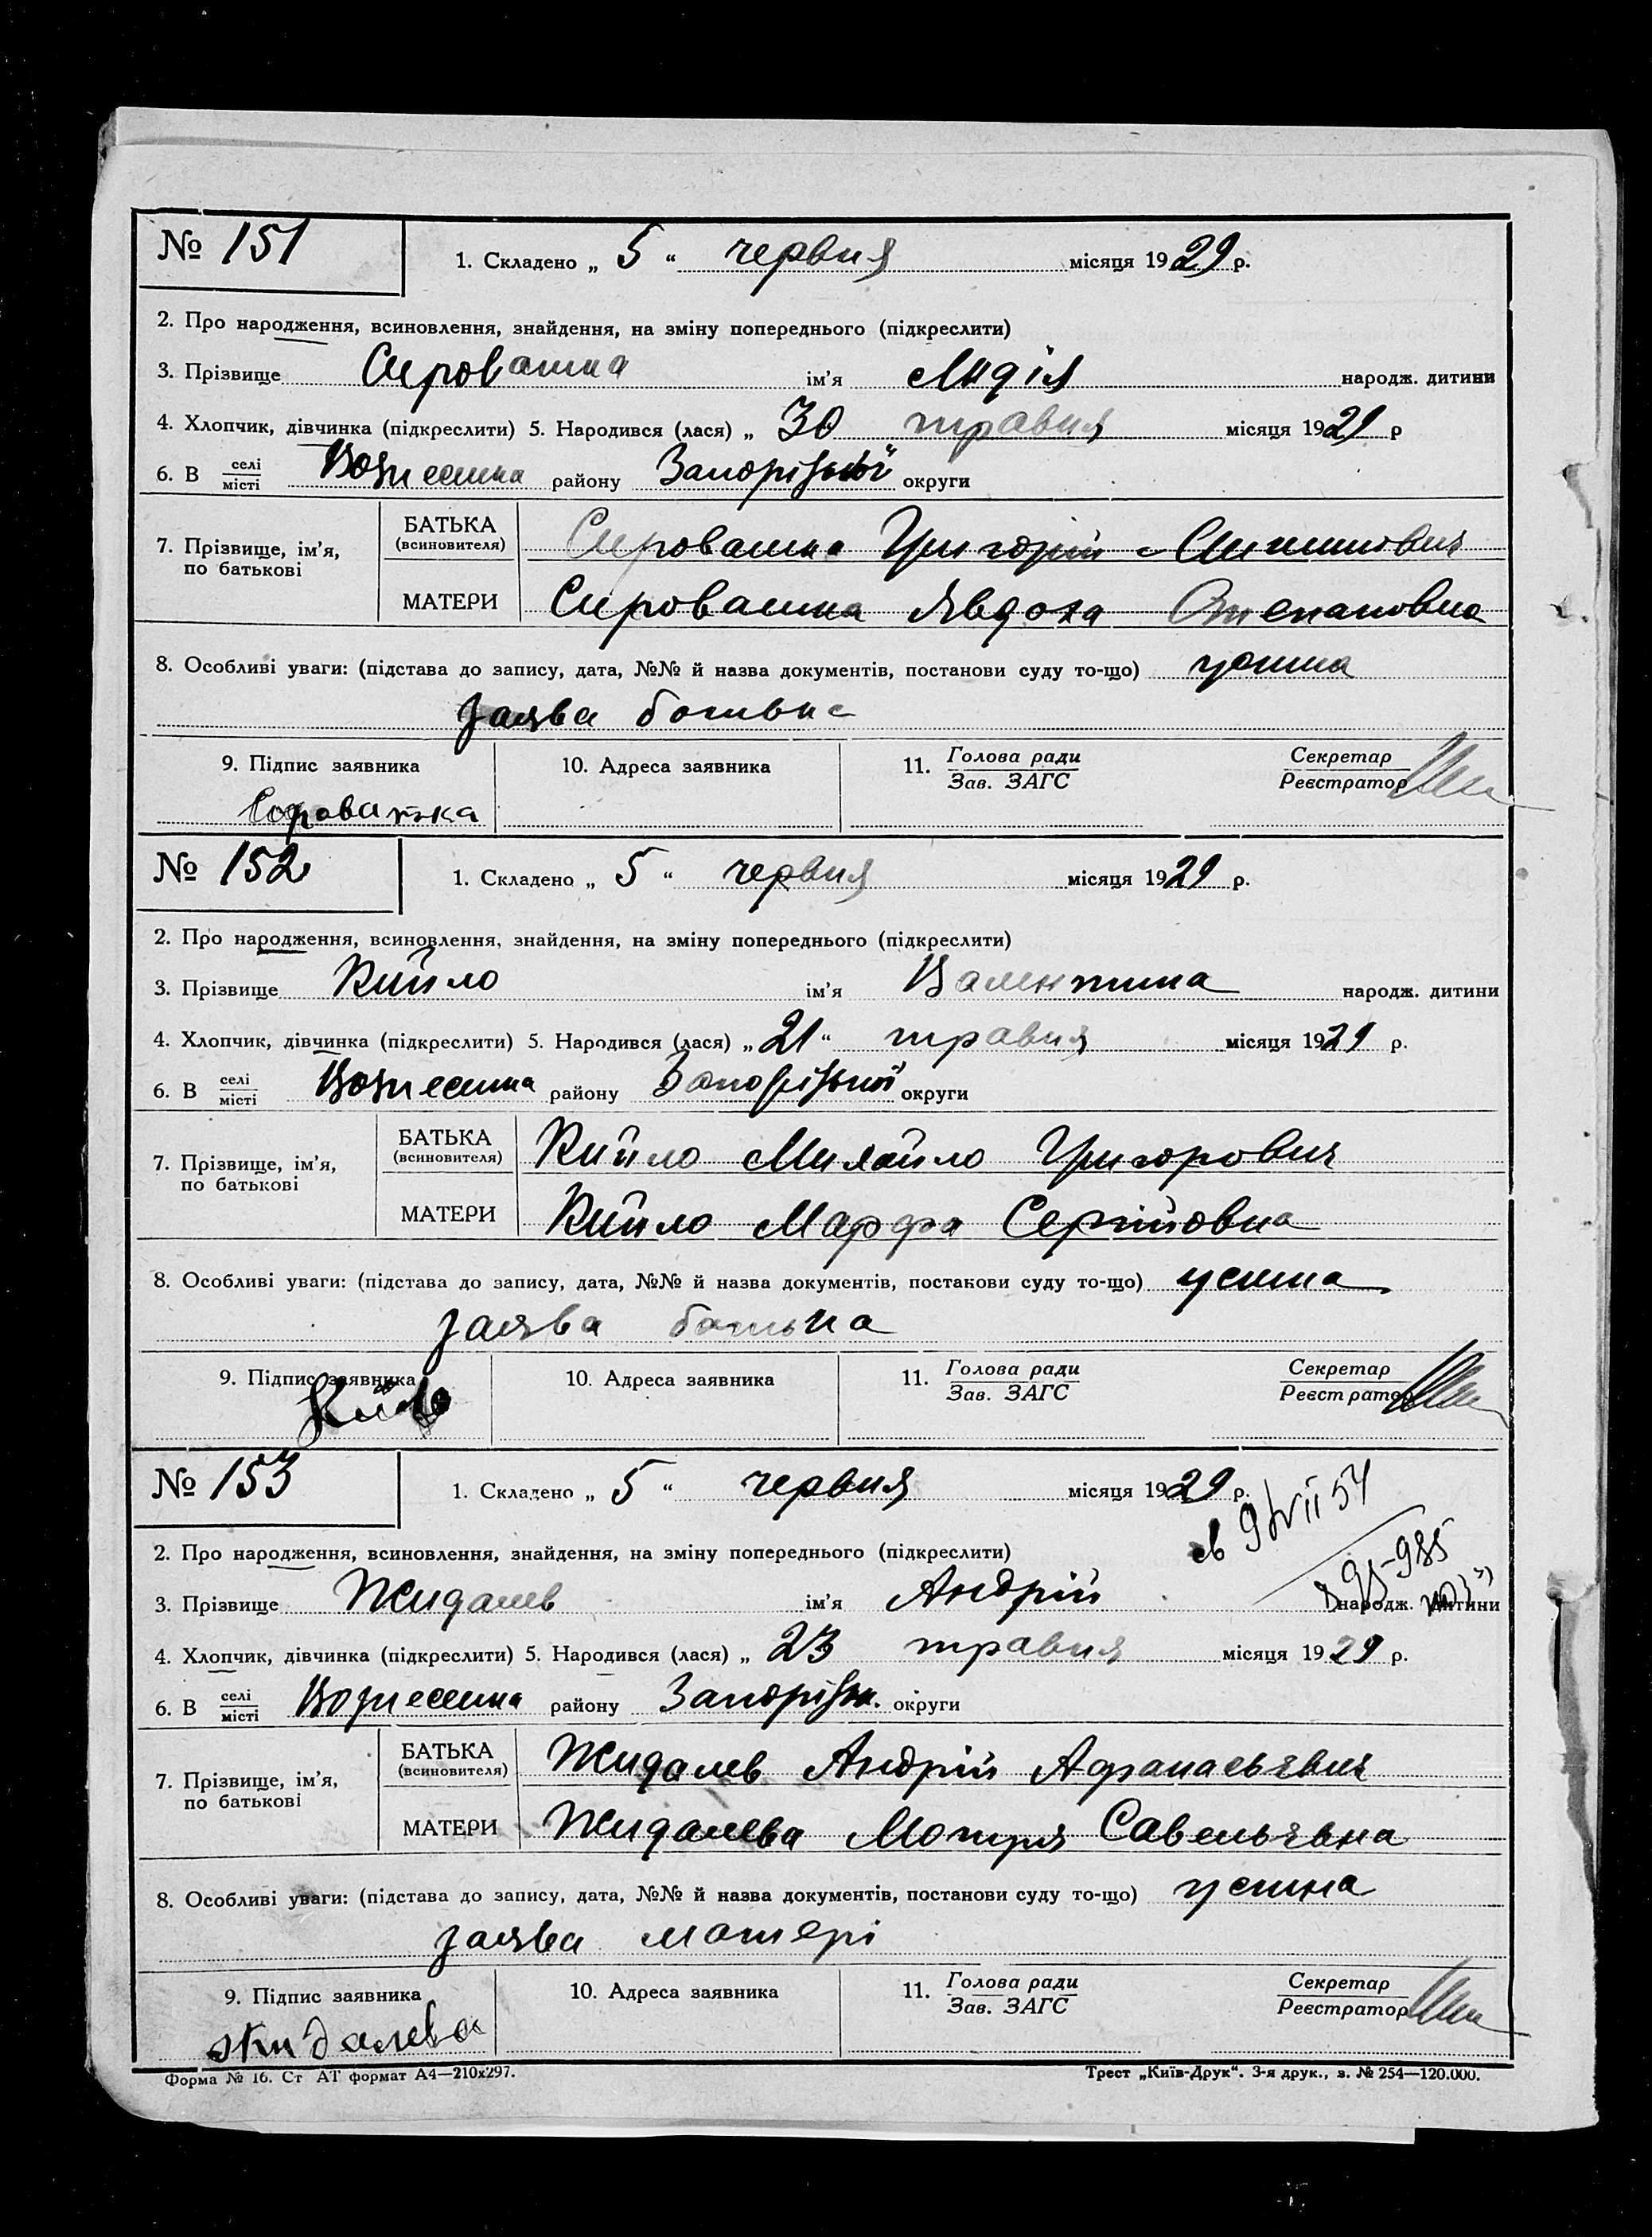 № 151
1. Складено „ 5 “ червня місяця 1929 р.
2. Про народження, всиновлення, знайдення, на зміну попереднього (підкреслити)
3. Прізвище Сироватка ім’я Лидія народж. дитини
4. Хлопчик, дівчинка (підкреслити) 5. Народився (лася) „ 30 травня місяця 1929 р
6. В селі місті Вознесенка району Запорізької округи
7. Прізвище, ім’я, по батькові
БАТЬКА (всиновителя) Сироватка Григорій Микитович
МАТЕРИ Сироватка Явдоха Степановна
8. Особливі уваги: (підстава до запису, дата, №№ й назва документів, постанови суду то-що) устна
заява батька
9. Підпис заявника 10. Адреса заявника 11. Голова ради Зав. ЗАГС Секретар Реєстратор
Сироватка
№ 152
1. Складено „ 5 “ червня місяця 1929 р.
2. Про народження, всиновлення, знайдення, на зміну попереднього (підкреслити)
3. Прізвище Кийло ім’я Валентина народж. дитини
4. Хлопчик, дівчинка (підкреслити) 5. Народився (лася) „ 21 “ травня місяця 1929 р.
6. В селі місті Вознесенка району Запорізької округи
7. Прізвище, ім’я, по батькові
БАТЬКА (всиновителя) Кийло Михайло Григорович
МАТЕРИ Кийло Марфа Сергійовна
8. Особливі уваги: (підстава до запису, дата, №№ й назва документів, постанови суду то-що) устна
заява батька
9. Підпис заявника 10. Адреса заявника 11. Голова ради Зав. ЗАГС Секретар Реєстратор
Кийло
№ 153
1. Складено „ 5 “ червня місяця 1929 р.
2. Про народження, всиновлення, знайдення, на зміну попереднього (підкреслити)
3. Прізвище Жидалев ім’я Андрій народж. дитини
4. Хлопчик, дівчинка (підкреслити) 5. Народився (лася) „ 23 травня місяця 1929 р.
6. В селі місті Вознесенка району Запорізьк. округи
7. Прізвище, ім’я, по батькові
БАТЬКА (всиновителя) Жидалев Андрій Афанасьєвич
МАТЕРИ Жидалева Мотря Савельєвна
8. Особливі уваги: (підстава до запису, дата, №№ й назва документів, постанови суду то-що) устна
заява матері
9. Підпис заявника 10. Адреса заявника 11. Голова ради Зав. ЗАГС Секретар Реєстратор
Жидалева
Форма № 16. Ст АТ формат А4—210х297. Трест „Київ-Друк“. 3-я друк., з. № 254—120.000.